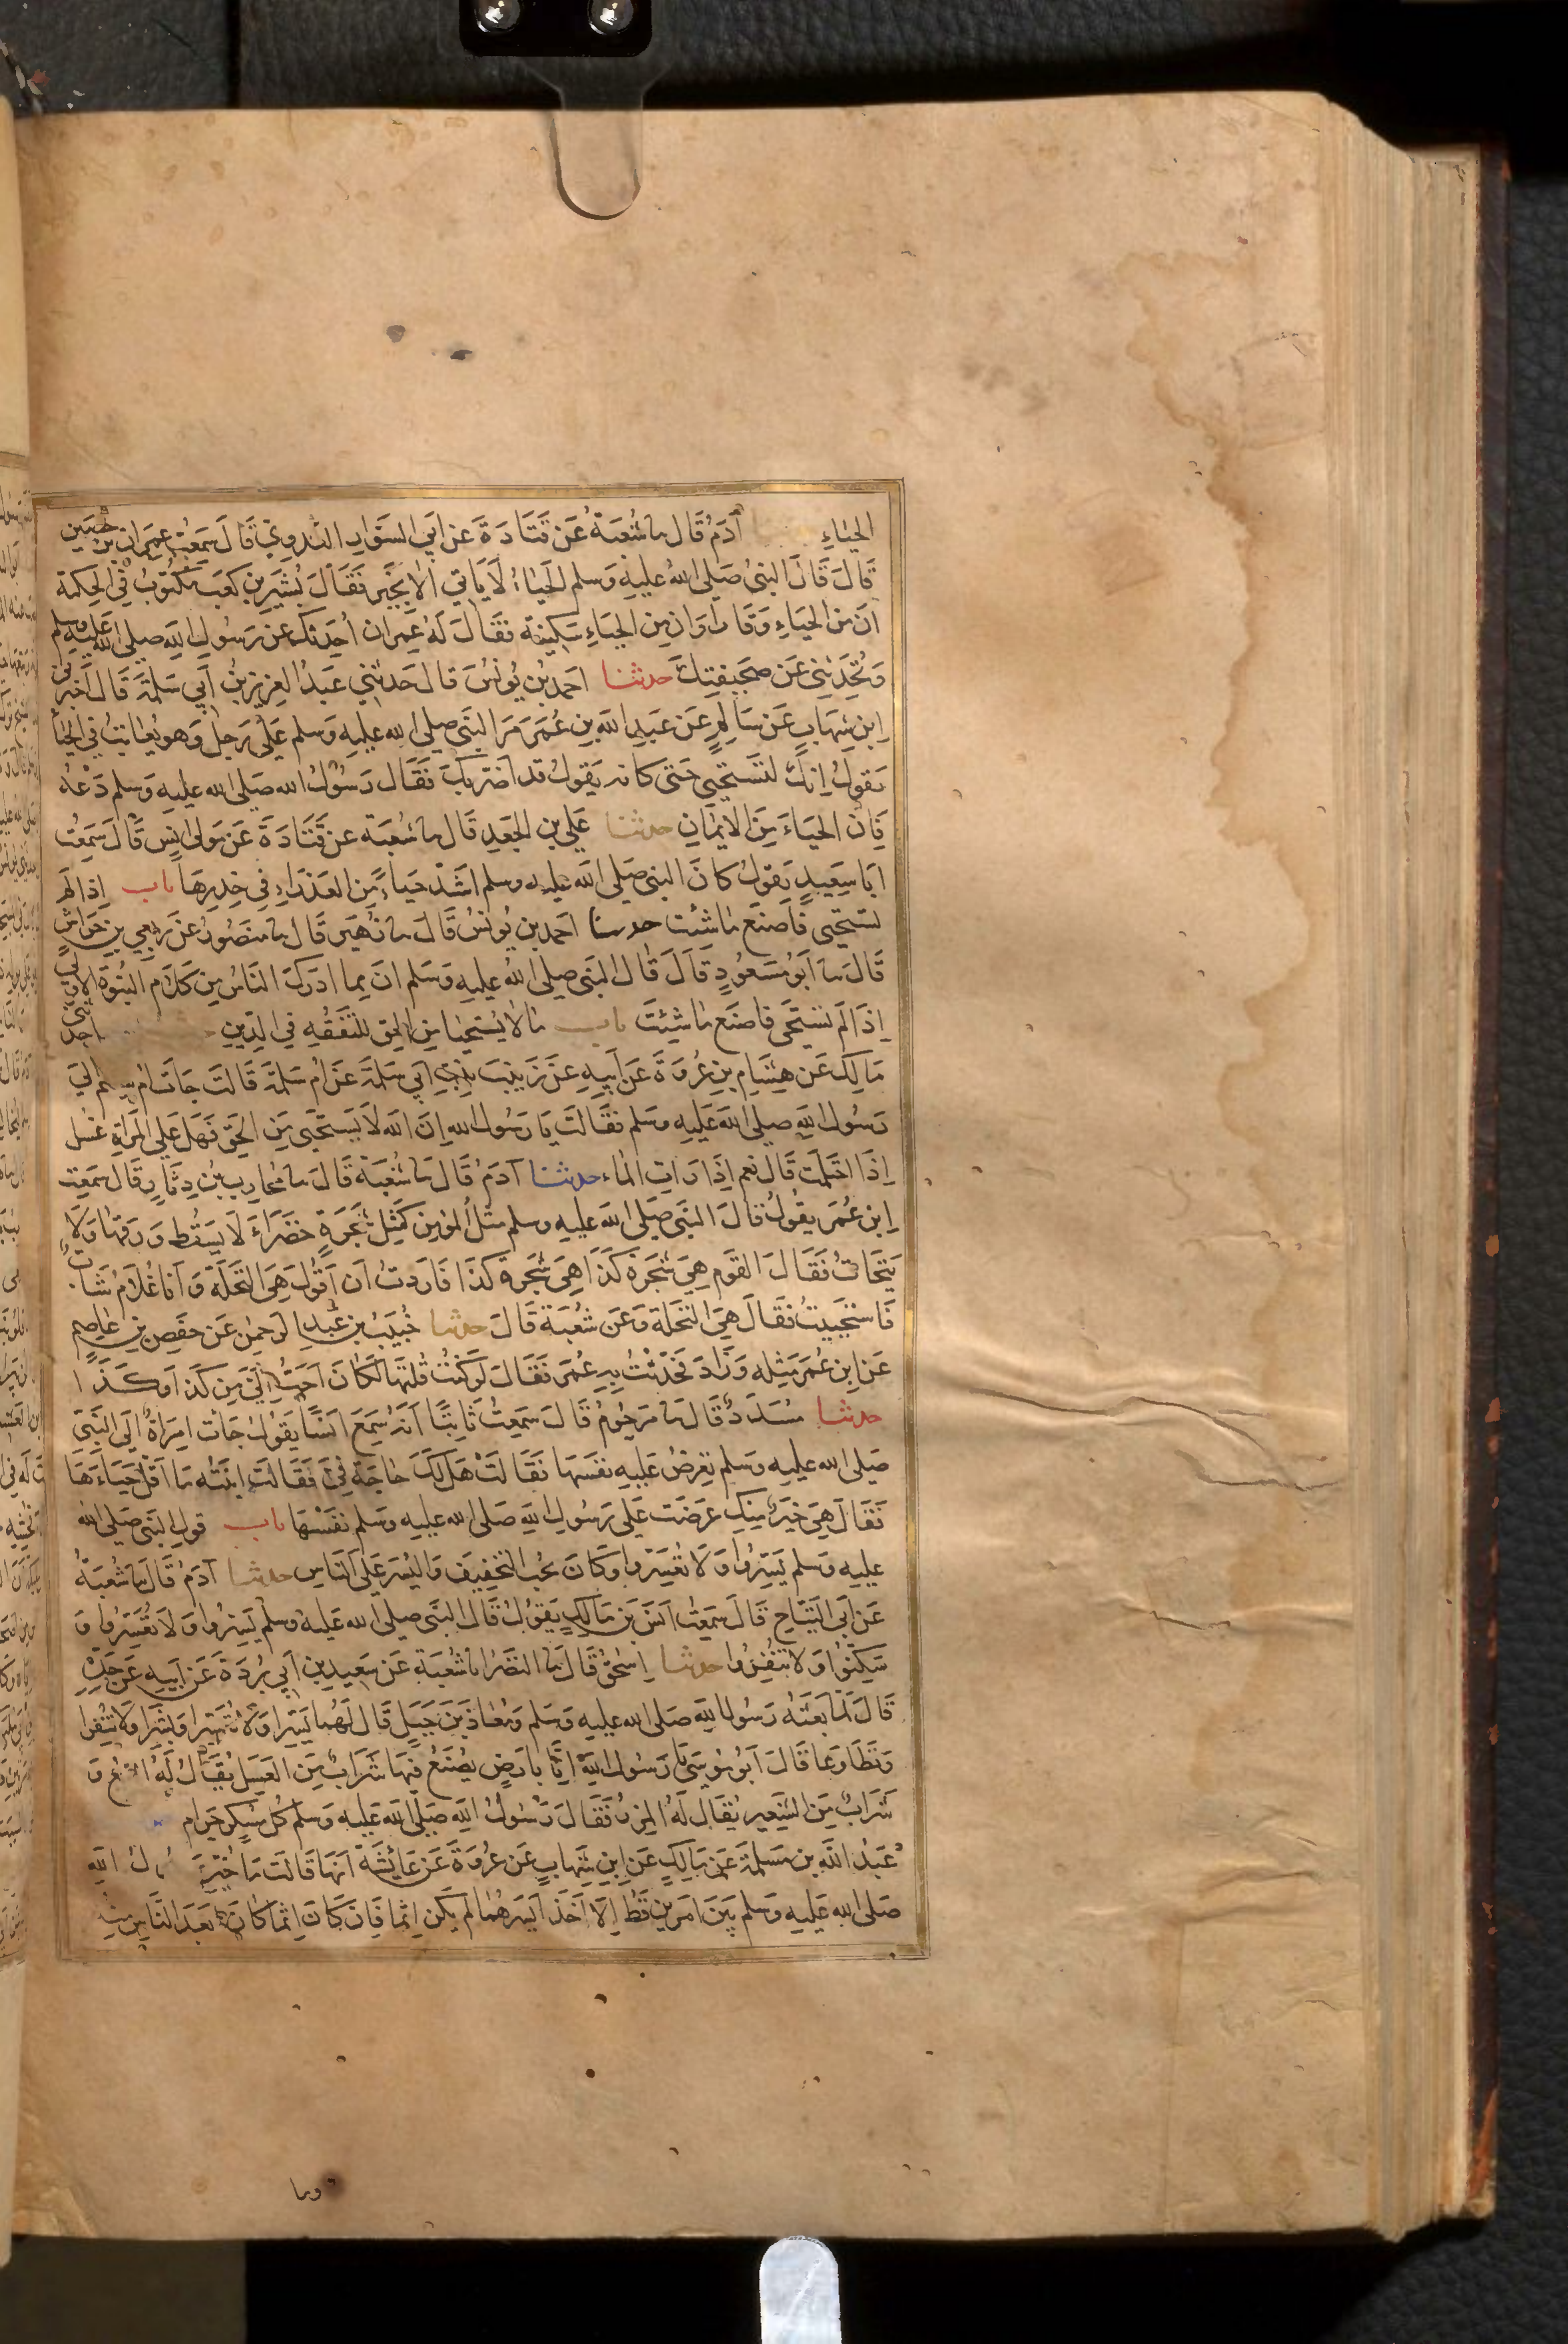 الحياء آدم قال نا شعبة عن قتادة عن أبي السوار العدوي قال سمعت عمران بن حصين
قال قال النبي صلى الله عليه وسلم الحياء لا يأتي الا بخير فقال بشير بن كعب مكتوب في الحكمة
ان من الحياء وقارا وان من الحياء سكينة فقال له عمران أحدثك عن رسول الله صلى الله عليه وسلم
وتحدثني عن صحيفتك حدثنا احمد بن يونس قال حدثني عبد العزيز بن أبي سلمة قال أخبرني
ابن شهاب عن سالم عن عبد الله بن عمر مر النبي صلى الله عليه وسلم على رجل وهو يعاتب في الحياء
يقول إنك لتستحيي حتى كانه يقول قد اضر بك فقال رسول الله صلى الله عليه وسلم دعه
فان الحياء من الايمان حدثنا علي بن الجعد قال نا شعبة عن قتادة عن مولى انس قال سمعت
ابا سعيد يقول كان النبي صلى الله عليه وسلم اشد حياء من العذراء في خدرها باب اذا لم
تستحيي فاصنع ما شئت حدثنا احمد بن يونس قال نا زهير قال نا منصور عن ربعي بن خراش
قال نا أبو مسعود قال قال النبي صلى الله عليه وسلم ان مما ادرك الناس من كلام النبوة الاولى
إذا لم تستحي فاصنع ما شئت باب ما لا يستحيا من الحق للتفقه في الدين
مالك عن هشام بن عروة عن أبيه عن زينب بنت أبي سلمة عن ام سلمة قالت جات ام سليم الى
رسول الله صلى الله عليه وسلم فقالت يا رسول الله ان الله لا يستحيي من الحق فهل على المراة غسل
إذا احتلمت قال نعم إذا رات الماء حدثنا آدم قال نا شعبة قال نا محارب بن دثار قال سمعت
ابن عمر يقول قال النبي صلى الله عليه وسلم مثل المؤمن كمثل شجرة خضراء لا يسقط ورقها ولا
يتحات فقال القوم هي شجرة كذا هي شجرة كذا فاردت ان اقول هي النخلة وانا غلام شاب
فاستحييت فقال هي النخلة وعن شعبة قال حدثنا خبيب بن عبد الرحمن عن حفص بن عاصم
عن ابن عمر مثله وزاد فحدثت به عمر فقال لو كنت قلتها لكان احب إلي من كذا وكذا
حدثنا مسدد قال نا مرحوم قال سمعت ثابتا انه سمع انسا يقول جات امراة الى النبي
صلى الله عليه وسلم تعرض عليه نفسها فقالت هل لك حاجة في فقالت ابنته ما اقل حياءها
فقال هي خير منك عرضت على رسول الله صلى الله عليه وسلم نفسها باب قول النبي صلى الله
عليه وسلم يسروا ولا تعسروا وكان يحب التخفيف واليسر على الناس حدثنا آدم قال نا شعبة
عن أبي التياح قال سمعت انس بن مالك يقول قال النبي صلى الله عليه وسلم يسروا ولا تعسروا و
سكنوا ولا تنفروا حدثنا اسحق قال نا النضر نا شعبة عن سعيد بن أبي بردة عن أبيه عن جده
قال لما بعثه رسول الله صلى الله عليه وسلم ومعاذ بن جبل قال لهما يسرا ولا تعسرا وبشرا ولا تنفرا
وتطاوعا قال أبو موسى يا رسول الله انا بارض يصنع فيها شراب من العسل يقال له البتع و
شراب من الشعير يقال له المزر فقال رسول الله صلى الله عليه وسلم كل مسكر حرام
عبد الله بن مسلمة عن مالك عن ابن شهاب عن عروة عن عائشة انها قالت ما خير رسول الله
صلى الله عليه وسلم بين امرين قط الا اخذ ايسرهما لم يكن اثما فان كان اثما كان ابعد الناس منه
وما